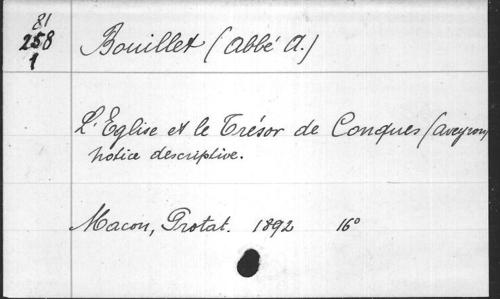 81
258
1
Bouillet (Abbé A.)
L'Eglise et le Trésor de Conques (Aveyron)
notice descriptive.
Macon, Protat. 1892 16°